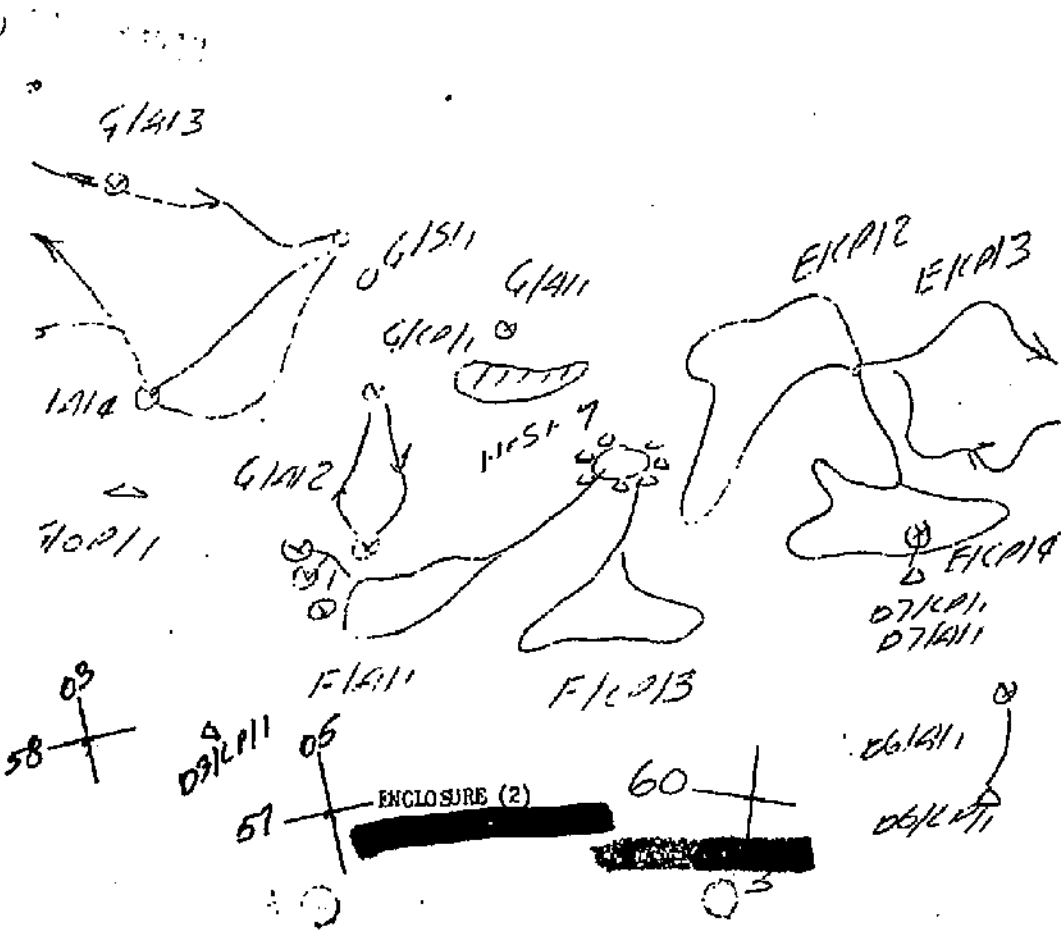 G/A/3
G/S/1
G/A/1
G/CP/1
E/CP/2
E/CP/3
G/A/2
E/CP/4
D7/CP/1
D7/A/1
F/A/1
F/CP/3
03
58
D3/CP/1
05
57
ENCLOSURE (2)
60
D6/A/1
D6/CP/1